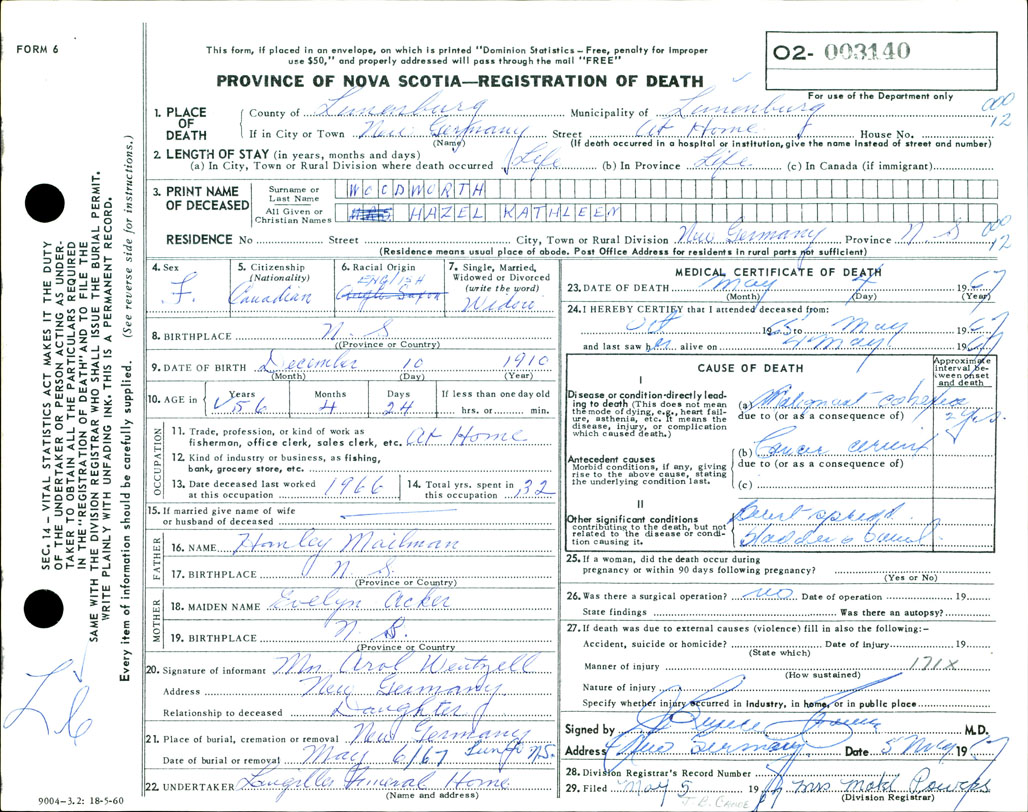 FORM 6
This form, if placed in an envelope, on which is printed "Dominion Statistics – Free, penalty for improper
use $50," and properly addressed will pass through the mail "FREE"
O2- 003140
PROVINCE OF NOVA SCOTIA—REGISTRATION OF DEATH
For use of the Department only
1. PLACE OF DEATH
County of Lunenburg Municipality of Lunenburg 000 12
If in City or Town New Germany Street At Home House No.
(Name) (If death occurred in a hospital or institution, give the name instead of street and number)
2. LENGTH OF STAY (in years, months and days)
(a) In City, Town or Rural Division where death occurred Life (b) In Province Life (c) In Canada (if immigrant)
3. PRINT NAME OF DECEASED
Surname or Last Name WOODWORTH
All Given or Christian Names MRS HAZEL KATHLEEN
RESIDENCE No Street City, Town or Rural Division New Germany Province N S 000 12
(Residence means usual place of abode. Post Office Address for residents in rural parts not sufficient)
4. Sex F.
5. Citizenship (Nationality) Canadian
6. Racial Origin ENGLISH Anglo Saxon
7. Single, Married, Widowed or Divorced (write the word) Widow
8. BIRTHPLACE N. S
(Province or Country)
9. DATE OF BIRTH December 10 1910
(Month) (Day) (Year)
10. AGE in Years 56 Months 4 Days 24 If less than one day old hrs. or min.
OCCUPATION
11. Trade, profession, or kind of work as
fisherman, office clerk, sales clerk, etc. At Home
12. Kind of industry or business, as fishing,
bank, grocery store, etc.
13. Date deceased last worked at this occupation 1966
14. Total yrs. spent in this occupation 32
15. If married give name of wife
or husband of deceased
FATHER
16. NAME Hanley Mailman
17. BIRTHPLACE N. S.
(Province or Country)
MOTHER
18. MAIDEN NAME Evelyn Acker
19. BIRTHPLACE N. S.
(Province or Country)
20. Signature of informant Mrs Arol Wentzell
Address New Germany
Relationship to deceased Daughter
21. Place of burial, cremation or removal New Germany
Date of burial or removal May 6/67 N.S.
22. UNDERTAKER Funeral Home
(Name and address)
9004–3.2: 18-5-60
MEDICAL CERTIFICATE OF DEATH
23. DATE OF DEATH May 4 1967
(Month) (Day) (Year)
24. I HEREBY CERTIFY that I attended deceased from:
Oct 1965 to May 1967
and last saw her alive on 4 May 1967
CAUSE OF DEATH
Approximate interval between onset and death
I
Disease or condition-directly leading to death (This does not mean the mode of dying, e.g., heart failure, asthenia, etc. It means the disease, injury, or complication which caused death.)
(a) Malignant 2 yrs.
due to (or as a consequence of)
Antecedent causes
Morbid conditions, if any, giving rise to the above cause, stating the underlying condition last.
(b) Cancer cervix
due to (or as a consequence of)
(c)
II
Other significant conditions
contributing to the death, but not related to the disease or condition causing it.
spread
bladder & bowel
25. If a woman, did the death occur during
pregnancy or within 90 days following pregnancy?
(Yes or No)
26. Was there a surgical operation? no Date of operation 19
State findings Was there an autopsy?
27. If death was due to external causes (violence) fill in also the following:–
Accident, suicide or homicide? Date of injury 19
(State which)
Manner of injury 171X
(How sustained)
Nature of injury
Specify whether injury occurred in industry, in home, or in public place
Signed by M.D.
Address New Germany Date 5 May 1967
28. Division Registrar's Record Number
29. Filed May 5 1967 Mrs
(Division Registrar)
SEC. 14 – VITAL STATISTICS ACT MAKES IT THE DUTY
OF THE UNDERTAKER OR PERSON ACTING AS UNDER-
TAKER TO OBTAIN ALL THE PARTICULARS REQUIRED
IN THE "REGISTRATION OF DEATH" AND TO FILE THE
SAME WITH THE DIVISION REGISTRAR WHO SHALL ISSUE THE BURIAL PERMIT.
WRITE PLAINLY WITH UNFADING INK. THIS IS A PERMANENT RECORD.
Every item of information should be carefully supplied. (See reverse side for instructions.)